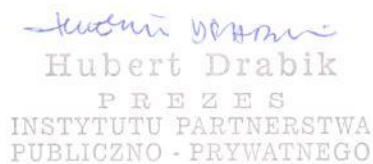 Hubert Drabik
PREZES
INSTYTUTU PARTNERSTWA
PUBLICZNO - PRYWATNEGO